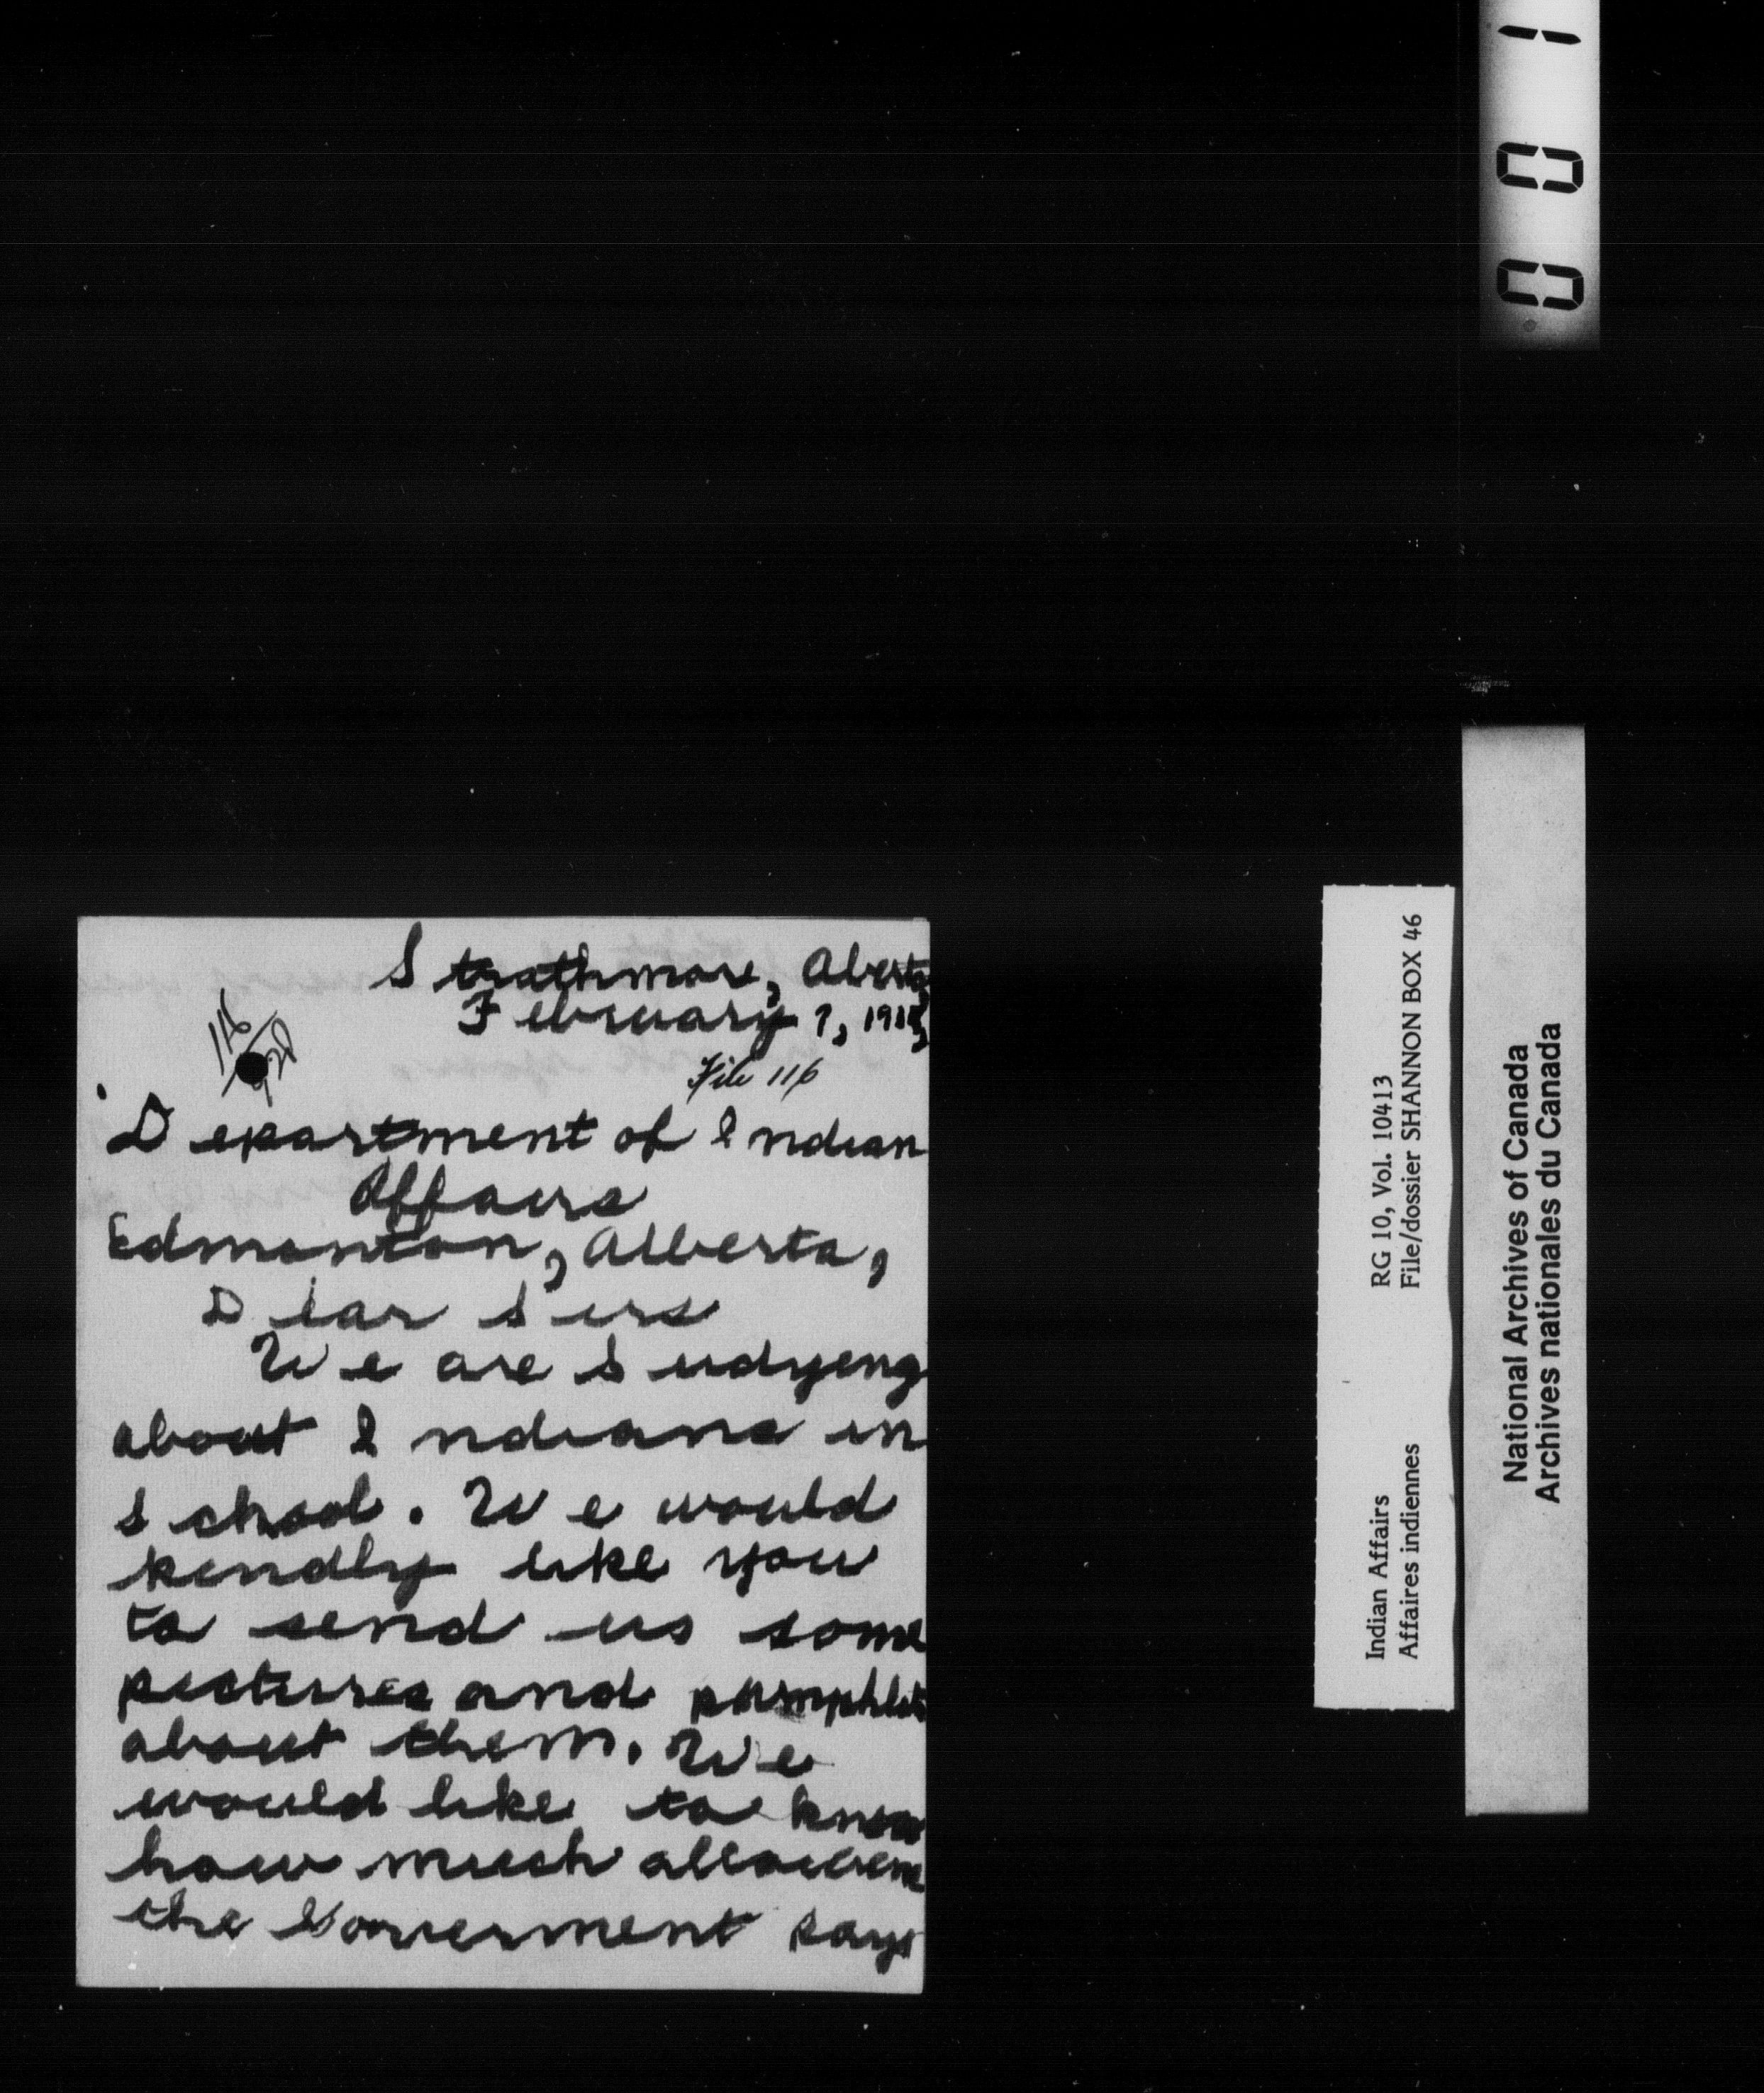 Strathmore, Aberta
February 7,
File 116
116
Department of Indian
Affairs
Edmonton, Alberta,
Dear Sirs
We are Sudying
about Indians in
School. We would
kindly like you
to send us some
pictures and pamphlets
about them. We
would like to know
how much
the Goverment pays
001
RG 10, Vol. 10413
File/dossier SHANNON BOX 46
Indian Affairs
Affaires indiennes
National Archives of Canada
Archives nationales du Canada